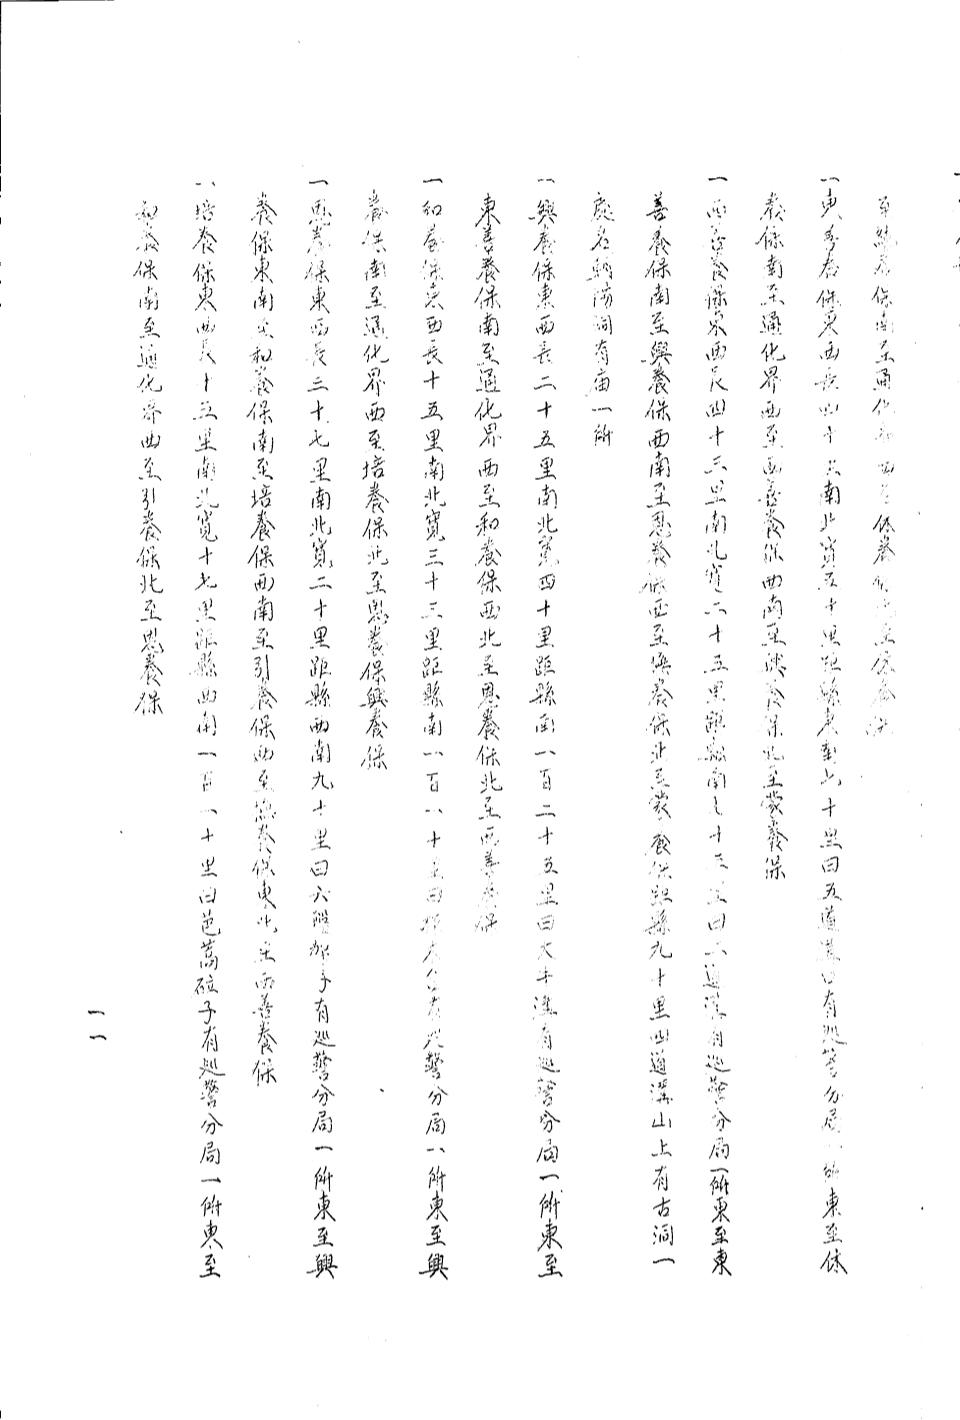 至綏養保南至通化界西至休養保北至
一東善養保東西長四十六南北寬五十里距縣東南六十里曰五道溝口有巡警分局一所東至休
養保南至通化界西至西善養保西南至養保北至蒙養保
一西善養保東西長四十三里南北寬二十五里距縣南七十三里曰二道溝有巡警分局一所東至東
善養保南至興養保西南至恩養保西至養保北至蒙養保距縣九十里四道溝山上有古洞一
處名朝陽洞有庙一所
一興養保東西長二十五里南北寬四十里距縣南一百二十五里曰大牛溝有巡警分局一所東至
東善養保南至通化界西至和養保西北至恩養保北至西善養保
一和養保東西長十五里南北寬三十三里距縣南一百一十里曰有巡警分局一所東至興
養保南至通化界西至培養保北至恩養保興養保
一恩養保東西長三十七里南北寬二十里距縣西南九十里曰六有巡警分局一所東至興
養保東南至和養保南至培養保西南至引養保西至養保東北至西善養保
一培養保東西長十三里南北寬十七里距縣西南一百一十里曰芭蒿砬子有巡警分局一所東至
和養保南至通化界西至引養保北至恩養保
一一